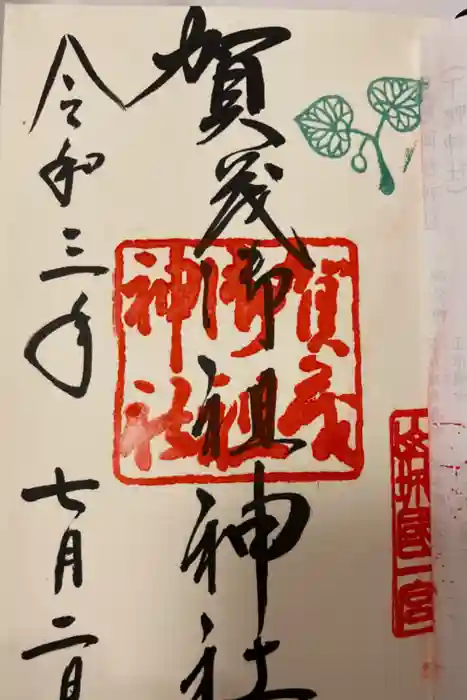 山城國一宮
賀茂御祖神社
賀茂
御祖
神社
令和三年
七月二日